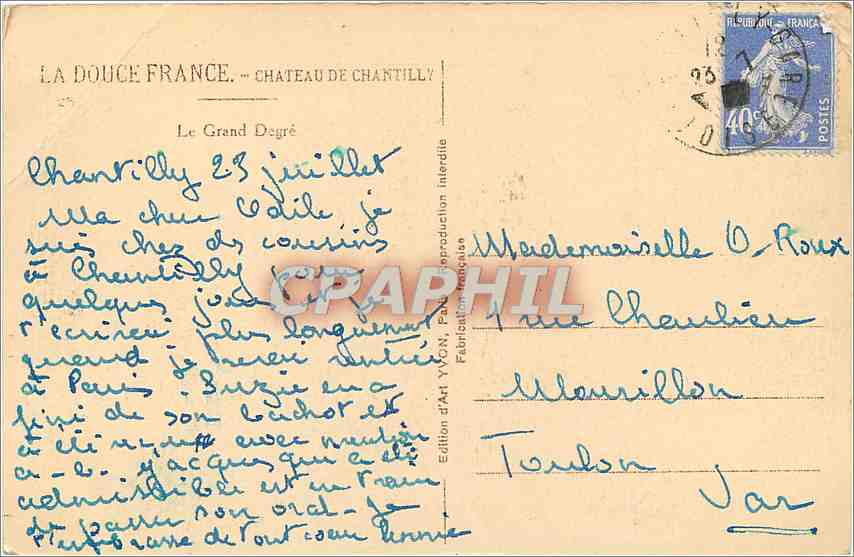 LA DOUCE FRANCE. - CHATEAU DE CHANTILLY
Le Grand Degré
Chantilly 23 juillet
Ma chere Odile je
suis chez des cousins
à Chantilly pour
quelques jours et je
t'ecrirai plus longuement
quand je serai rentrée
à Paris. Suzie en a
fini de son bachot et
à été reçue avec mention
a-b. Jacques qui a été
admissible est en train
de passer son oral. Je
t'embrasse de tout coeur
Edition d'Art YVON, Paris Reproduction interdite
Fabrication française
CPAPHIL
REPUBLIQUE FRANÇAISE
40c
POSTES
23 7
OISE
Mademoiselle O. Roux
1 rue Chaulieu
Mourillon
Toulon
Var